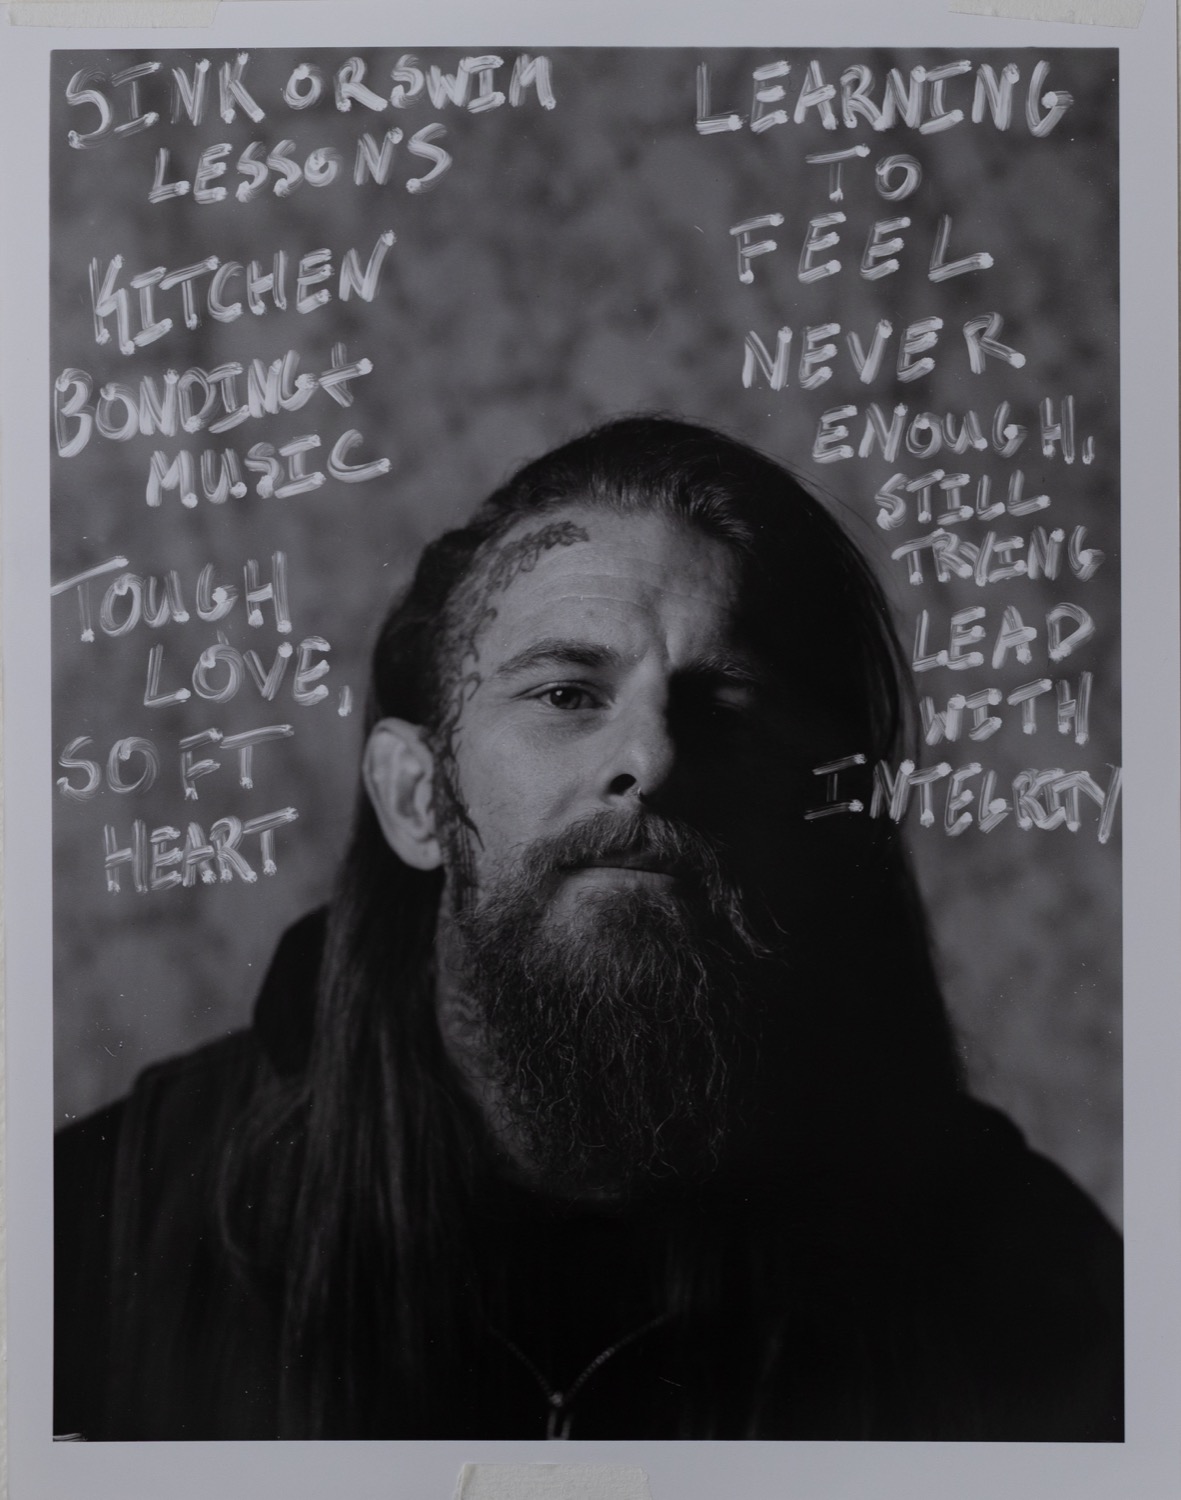 SINK OR SWIM
LESSONS
KITCHEN
BONDING +
MUSIC
TOUGH
LOVE,
SOFT
HEART
LEARNING
TO
FEEL
NEVER
ENOUGH.
STILL
TRYING
LEAD
WITH
INTEGRITY